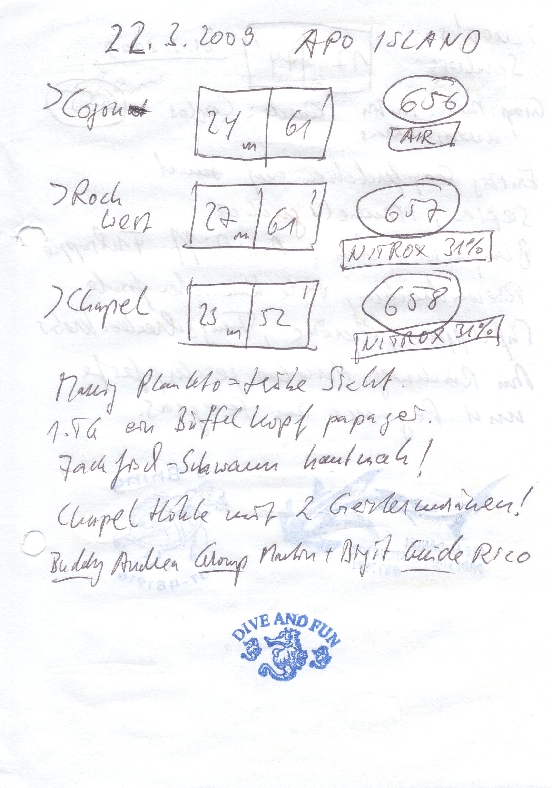 22.3.2009 APO ISLAND
> Cogon
24 m 61'
656
AIR
> Rock West
27 m 61'
657
NITROX 31%
> Chapel
25 m 52'
658
NITROX 31%
Massig Plankto = trübe Sicht.
1. TG ein Büffelkopf papagei.
Jackfisch-Schwarm hautnah!
Chapel Höhle mit 2 Geistermuränen!
Buddy Andrea Group Martin + Birgit Guide Rico
DIVE AND FUN